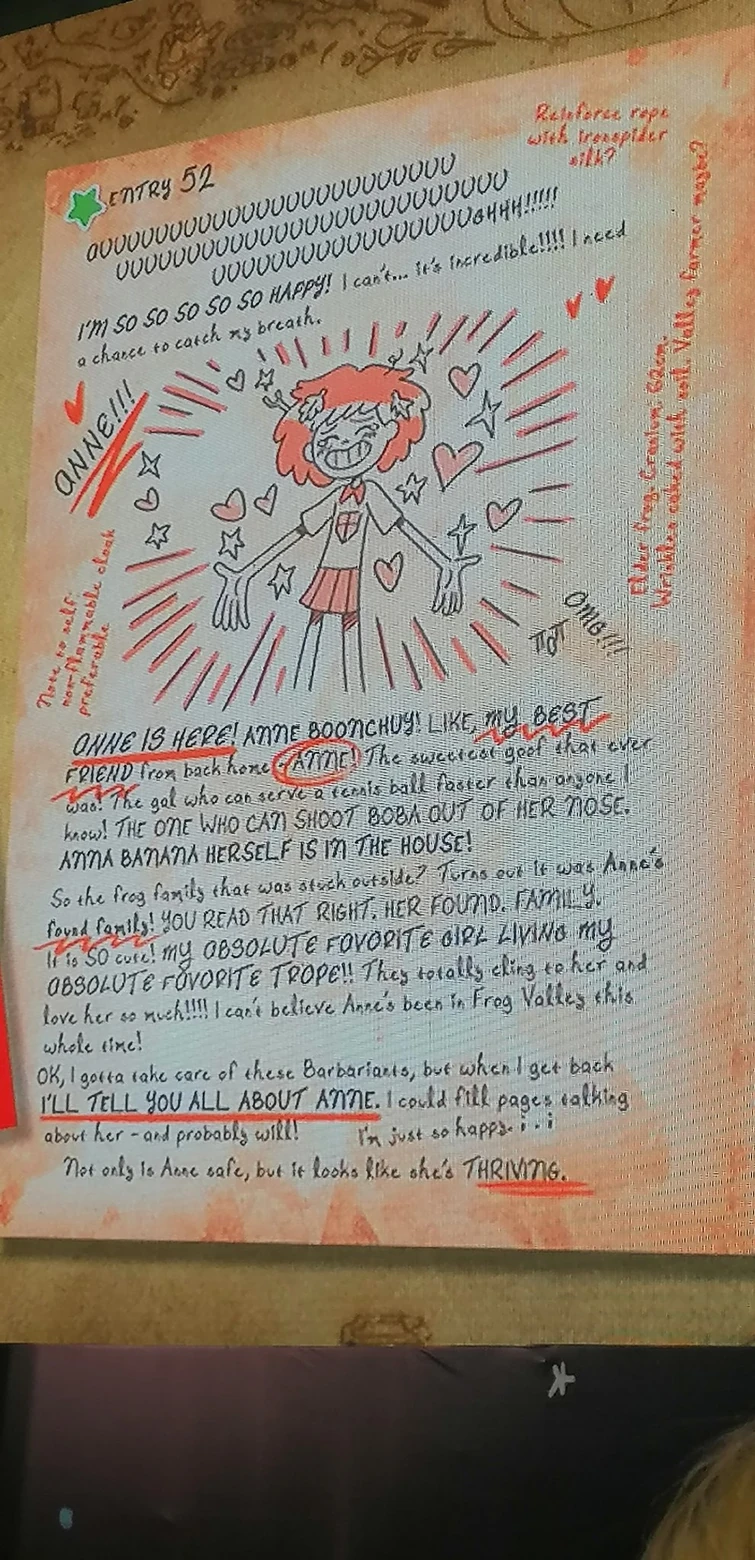 Reinforce rope
with ironspider
silk?
ENTRY 52
OUUUUUUUUUUUUUUUUUUUUUUUUU
UUUUUUUUUUUUUUUUUUUUUUUUUUU
UUUUUUUUUUUUUUUUUUGHHH!!!!!
I'M SO SO SO SO SO HAPPY! I can't... it's incredible!!!! I need
a chance to catch my breath.
ANNE!!!
Note to self:
non-flammable cloak
preferable
Elder frog. Cranium: 62cm.
Wrinkles caked with soil. Valley farmer maybe?
OMG!!!
ANNE IS HERE! ANNE BOONCHUY! LIKE, MY BEST
FRIEND from back home ANNE! The sweetest goof that ever
was! The gal who can serve a tennis ball faster than anyone I
know! THE ONE WHO CAN SHOOT BOBA OUT OF HER NOSE.
ANNA BANANA HERSELF IS IN THE HOUSE!
So the frog family that was stuck outside? Turns out it was Anne's
found family! YOU READ THAT RIGHT. HER FOUND. FAMILY.
It is SO cute! MY ABSOLUTE FOVORITE GIRL LIVING MY
ABSOLUTE FOVORITE TROPE!! They totally cling to her and
love her so much!!!! I can't believe Anne's been in Frog Valley this
whole time!
OK, I gotta take care of these Barbariants, but when I get back
I'LL TELL YOU ALL ABOUT ANNE. I could fill pages talking
about her - and probably will! I'm just so happy. . .
Not only is Anne safe, but it looks like she's THRIVING.